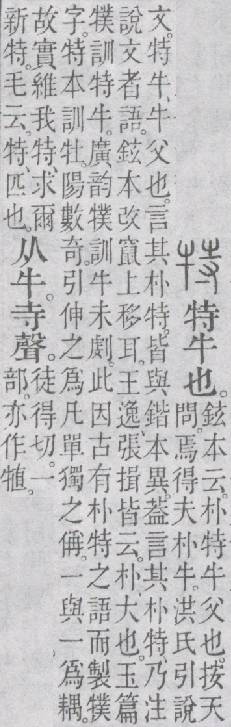 特 特牛也。
鉉本云。朴特牛父也。按天
問。焉得夫朴牛。洪氏引說
文。特牛、牛父也。言其朴特。皆與鍇本異。葢言其朴特乃注
說文者語。鉉本改竄上移耳。王逸、張揖皆云。朴大也。玉篇
㹒訓特牛。廣韵㹒訓牛未劇。此因古有朴特之語而製㹒
字。特本訓牡。陽數奇。引伸之爲凡單獨之偁。一與一爲耦。
故實維我特。求爾
新特。毛云。特匹也。
从牛。寺聲。
徒得切。一
部。亦作犆。